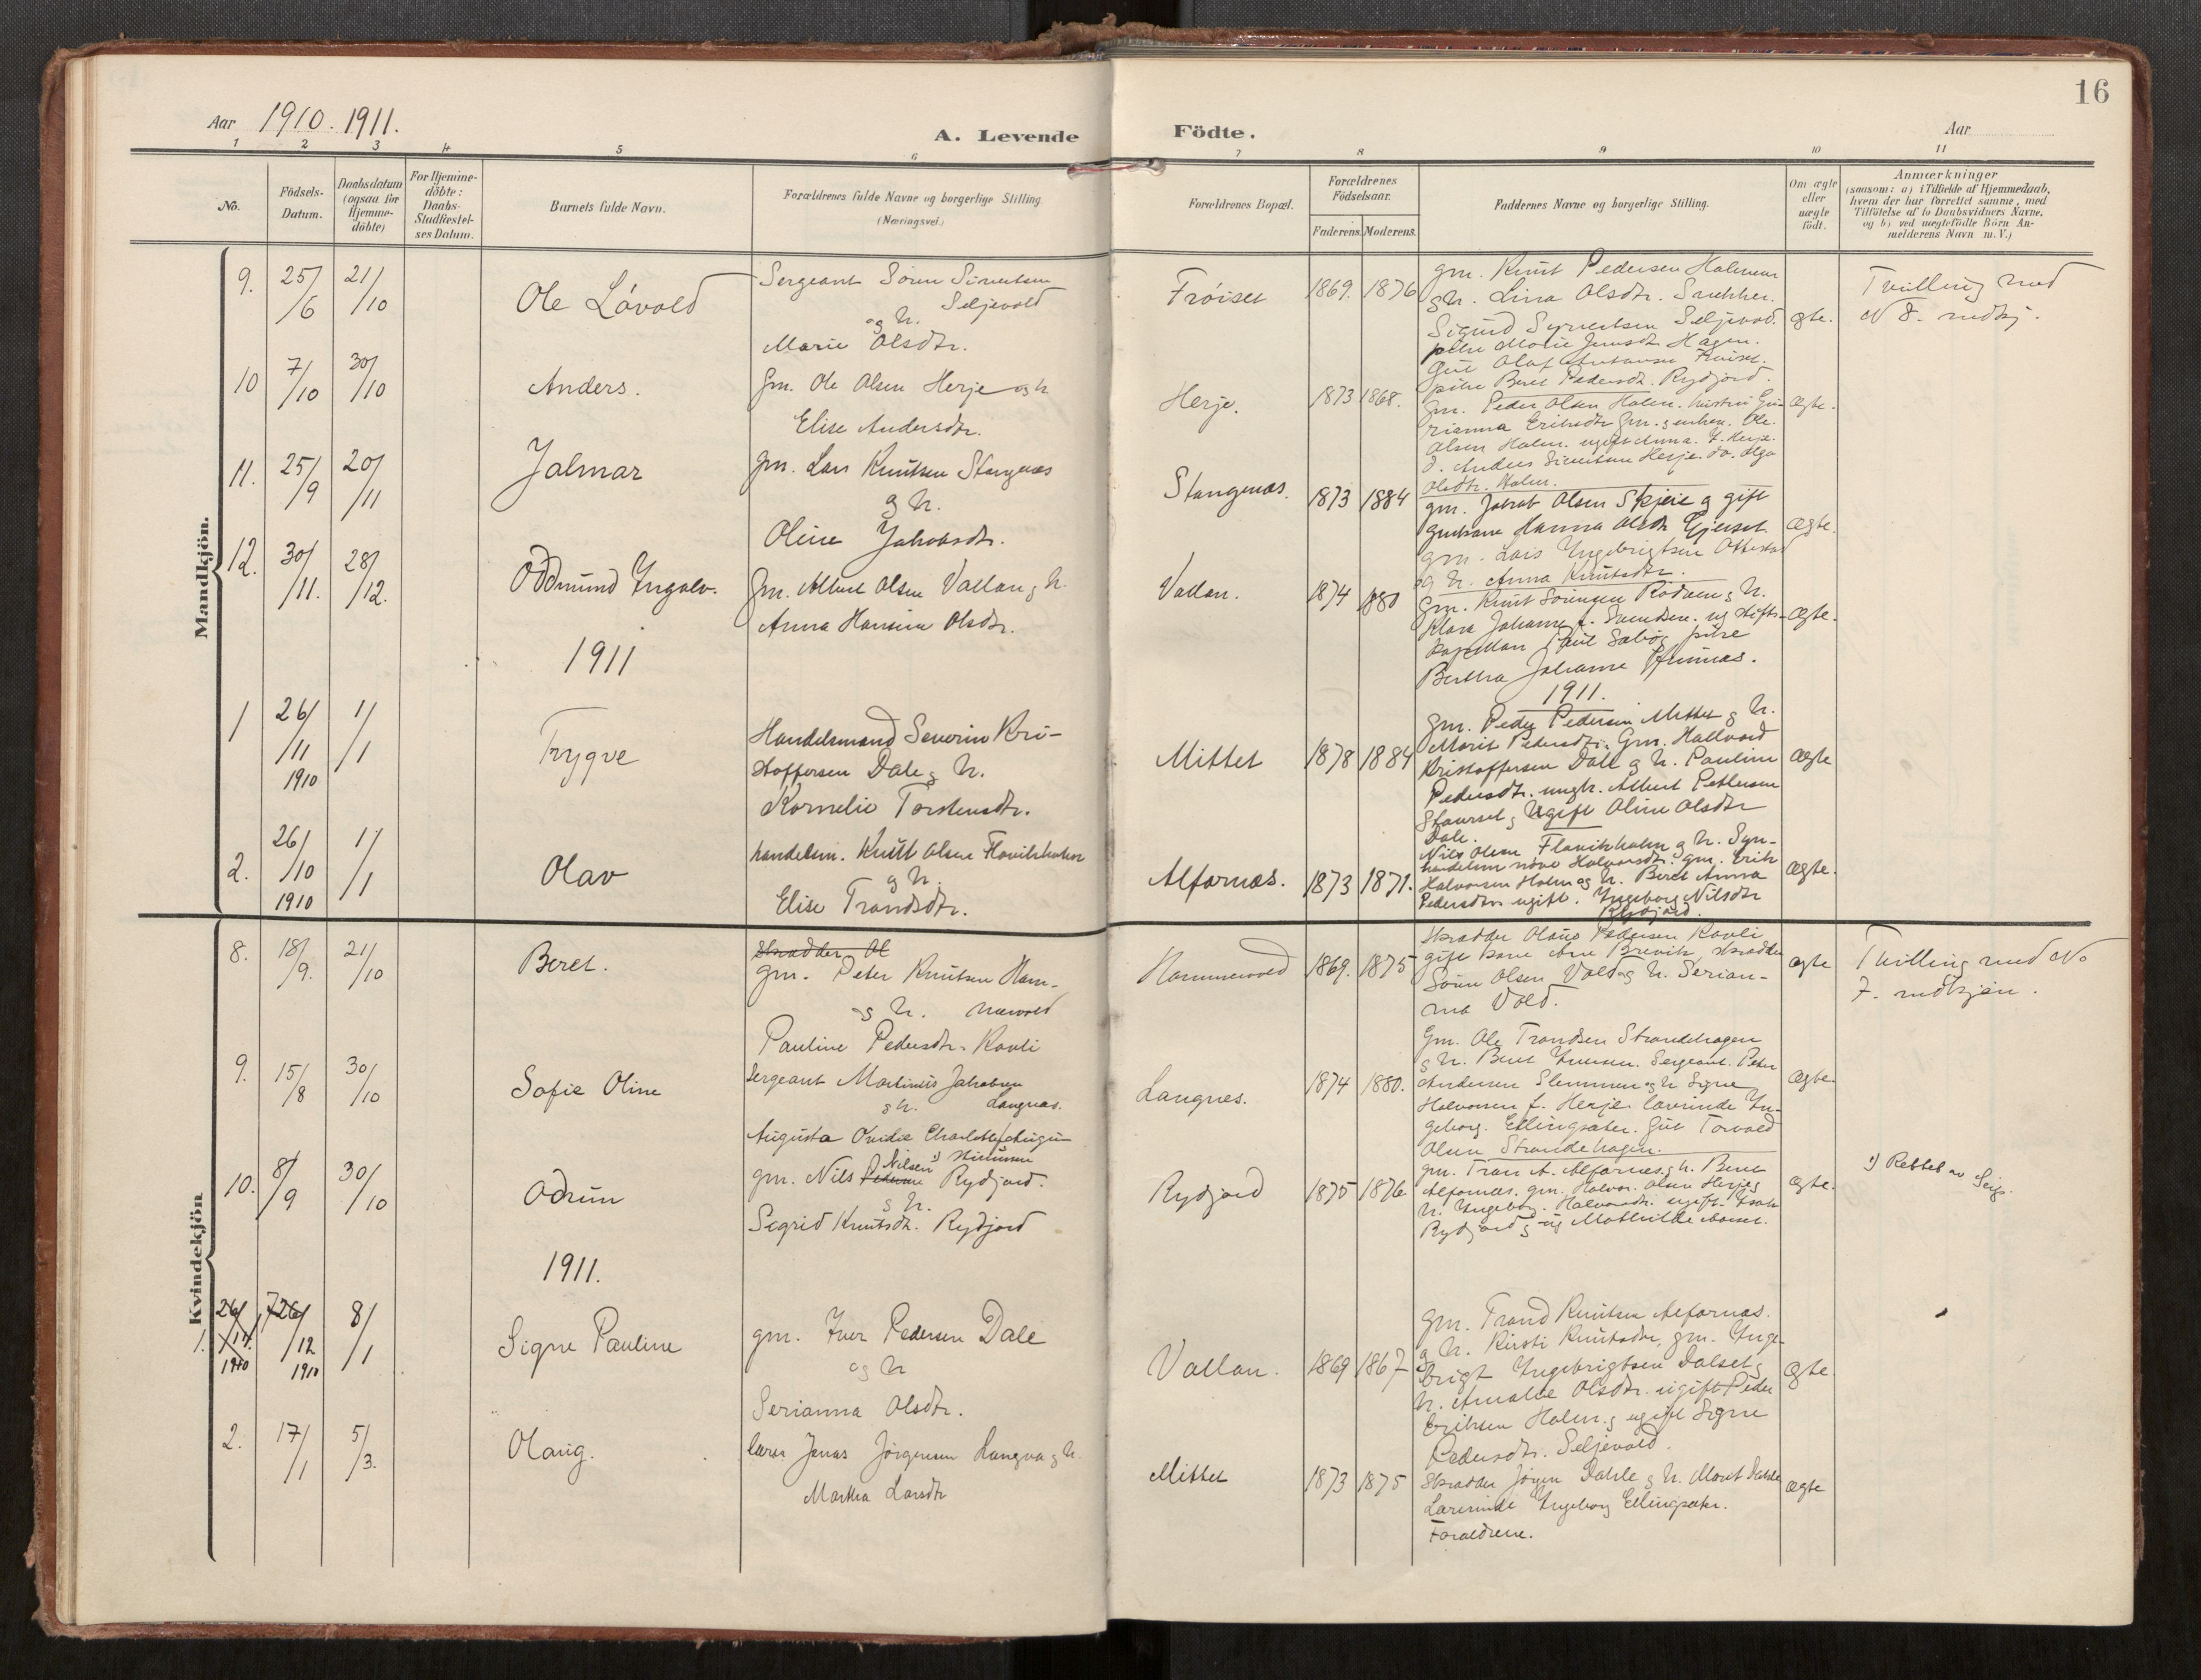 16
Aar 1910. 1911.
A. Levende Födte.
Aar
1 2 3 4 5 6 7 8 9 10 11
No.
Födsels-Datum.
Daabsdatum (ogsaa for Hjemme-döbte)
For Hjemme-döbte: Daabs-Stadfæstel-ses Datum.
Barnets fulde Navn.
Forældrenes fulde Navne og borgerlige Stilling. (Næringsvei.)
Forældrenes Bopæl.
Forældrenes Födselsaar.
Faderens. Moderens.
Faddernes Navne og borgerlige Stilling.
Om ægte eller uægte födt.
Anmærkninger
(saasom: a) i Tilfælde af Hjemmedaab,
hvem der har forrettet samme, med
Tilföielse af to Daabsvidners Navne,
og b) ved uægtefödte Börn An-
melderens Navn m. V.)
Mandkjön.
9. 25/6 21/10 Ole Lövold
Sergeant Sören Sivertsen
Seljevold
og h.
Marie Olsdtr.
Fröiset 1869. 1876
gm. Knut Pedersen Holmem
g h. Lina Olsdtr.
Seljevold.
pike Marie
Gut Olaf
pike Beret Pedersdtr. Rydjord.
ægte.
Tvilling med
N 8. mdkj.
10 7/10 30/10 Anders.
Gm. Ole Olsen Herje og h
Elise Andersdtr.
Herje. 1873 1868.
Gm. Peder Olsen Holm. hustru Gu-
rianna Eriksdtr. Gm. enken. Ole
Olsen Holm. ugift Anna. Herje.
Anders Sivertsen Herje. do. Olga
Olsdtr. Holm.
Ægte.
11. 25/9 20/11 Jalmar
gm. Lars Knutsen Stangnæs
g h.
Oline Jakobsdtr.
Stangnæs. 1873 1884
gm. Jakob Olsen Skjeie g gift
Hanna Olsdtr Gjerset.
gm. Lars Ingebrigtsen
og h. Anna Knutsdtr.
Ægte.
12. 30/11. 28/12. Oddmund Ingolv.
Gm. Albert Olsen Vallan g h.
Anna Hansine Olsdtr.
Vallan. 1874 1880
Gm. Knut Sörensen Rödven g h.
Klara Johanne
Bertha Johanne
Ægte.
1911
1911.
1 26/11 1910 1/1 Trygve
Handelsmand Severin Kri-
stoffersen Dale g h.
Kornelie Torstensdtr.
Mittet 1878 1884
Gm. Peder Pedersen Mittet g h.
Marit Pedersdtr. Gm. Hallvard
Kristoffersen Dale g h. Pauline
Pedersdtr. ungk. Albert Pettersen
g ugift Oline Olsdtr
Dale.
Ægte
2. 26/10 1910 1/1 Olav
handelsm. Knut Olsen Flovikholm
g h.
Elise Trondsdtr.
Alfarnæs. 1873 1871.
Nils Olsen Flovikholm g h. Syn-
növe Halvorsdtr. gm. Erik
Halvorsen Holm og h. Beret Anna
Pedersdtr ugift. Ingeborg Nilsdtr
Rydjord.
Ægte.
Kvindekjön
8. 18/9. 21/10 Beret.
Skrædder Ol
gm. Peter Knutsen Ham-
g h. mervold
Pauline Pedersdtr. Kavli
Hammervold 1869. 1875
Skrædder Olaus Pedersen Kavli
gift kone Ane Brevik, skrædder
Sören Olsen Vold og h. Serian-
na Vold.
ægte
Tvilling med No
7. mdkjön.
9. 15/8 30/10 Sofie Oline
Sergeant Martinus Jakobsen
g h. Langnæs.
Augusta Ovidie Charlotte
Langnes. 1874 1880.
Gm. Ole Trondsen Strandehagen
g h. Beret Iversen. Sergeant. Peter
Andersen Slemmen og h Signe
Halvorsen f. Herje. lærerinde In-
geborg. Ellingsæter. Gut Torvald
Olsen Strandehagen.
Ægte.
10. 8/9 30/10 Odrun
gm. Nils Pedersen Nilsen 1) Rydjord.
g h.
Sigrid Knutsdtr. Rydjord
Rydjord 1875 1876
gm. Tron A. Alfarnes. g h. Beret
Alfarnæs. gm. Halvor. Olsen Herje g
h. Ingeborg. Halvorsdtr. ugift Isak
Rydjord g ug Mathilde
ægte.
1) Rettet av
1911.
1. 26/11. 1910 26/12 1910 8/1 Signe Pauline
gm. Iver Pedersen Dale
og h
Serianna Olsdtr.
Vallan. 1869 1867
gm. Trond Knutsen Alfarnæs.
g h. Kirsti Knutsdtr, gm. Inge-
brigt Ingebrigtsen Dalset g
h. Amalie Olsdtr. ugift Peder
Eriksen Holm. g ugift Signe
Pedersdtr. Seljevold.
ægte.
2. 17/1 5/3. Olaug.
lærer Jonas Jörgensen Langva g h.
Martha Larsdtr
Mittet 1873 1875
Skrædder Jörgen Dahle g h. Marit Dahle
Lærerinde Ingeborg Ellingsæter.
Forældrene.
ægte